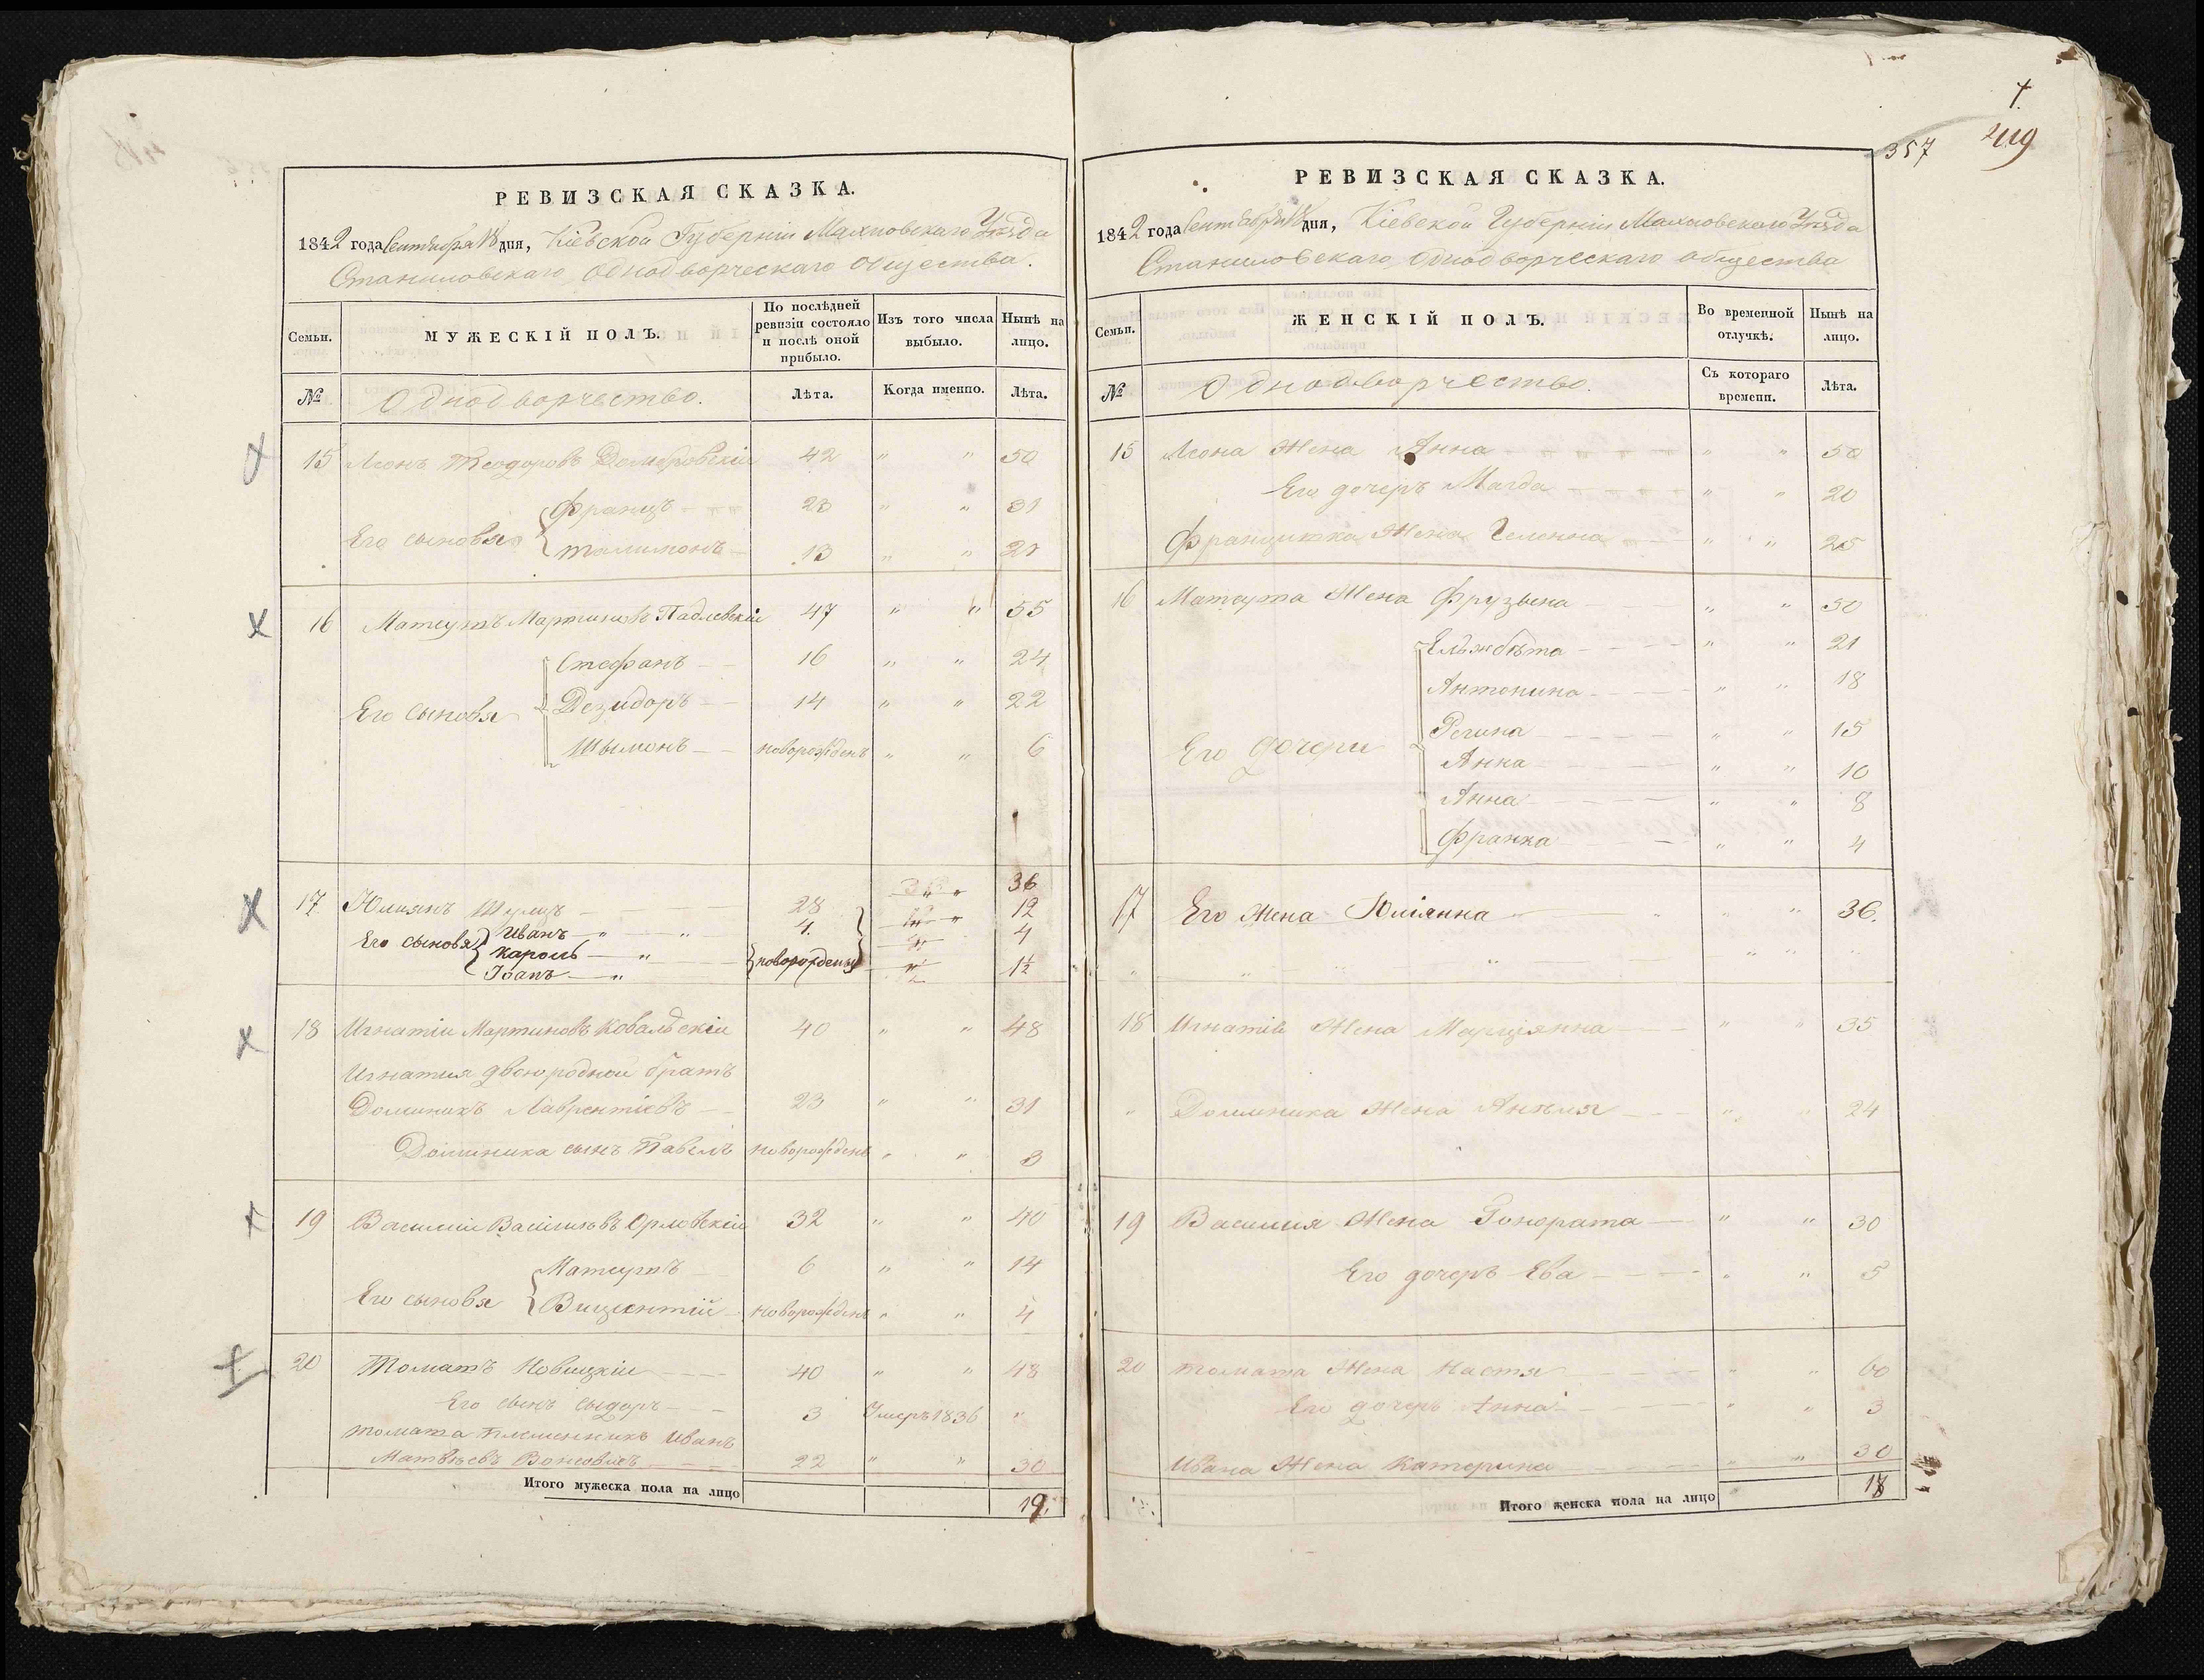 РЕВИЗСКАЯ СКАЗКА.
1842 года Сентября 18 дня, Кіевской Губерніи Махновскаго Уѣзда
Станиловскаго Однодворческаго Общества.
Семьи.
МУЖЕСКІЙ ПОЛЪ.
По послѣдней ревизіи состояло и послѣ оной прибыло.
Изъ того числа выбыло.
Нынѣ на лицо.
№
Однодворчество.
Лѣта.
Когда именно.
Лѣта.
15 Леонъ Теодоровъ Домбровскіи 42 " " 50
Францъ 23 " " 31
Его сыновья
13 " " 21
16 Матеушъ Мартиновъ Падлевскіи 47 " " 55
Стефанъ 16 " " 24
Его сыновья Дезидоръ 14 " " 22
Шымонъ новорожденъ " " 6
17 Юлиянъ Шульцъ 28 " " 36
Его сыновья Иванъ 4. 12
Кароль 4
новорождены
Іванъ 1½
18 Игнатіи Мартиновъ Ковальскіи 40 " " 48
Игнатия двоюродной братъ
Доминикъ Лаврентіевъ 23 " " 31
Доминика сынъ Павелъ новорожденъ " " 3
19 Василіи Васильовъ Орловскіи 32 " " 40
Матеушъ 6 " " 14
Его сыновья Вицентій новорожденъ " " 4
20 Томашъ Новицкіи 40 " " 48
Его сынъ Сыдоръ 3 Умеръ 1836 "
Томаша племенникъ Иванъ
Матвѣевъ 22 " " 30
Итого мужеска пола на лицо 19.
357
419
РЕВИЗСКАЯ СКАЗКА.
1842 года Сентября 18 дня, Кіевской Губерніи Махновскаго Уѣзда
Станиловскаго Однодворческаго общества
Семьи.
ЖЕНСКІЙ ПОЛЪ.
Во временной отлучкѣ.
Нынѣ на лицо.
№
Однодворчество.
Съ котораго времени.
Лѣта.
15 Леона Жена Анна " " 50
Его дочеръ Магда " " 20
Францишка Жена Геленна " " 25
16 Матеуша Жена Фрузына " " 50
Ельжбѣта " " 21
Антонина " " 18
Регина " " 15
Его дочери
Анна " " 10
Анна " " 8
Франка " " 4
17 Его Жена Юліянна " " 36.
18 Игнатія Жена Марціянна " " 35
" Доминика Жена Анѣля " " 24
19 Василия Жена Гонората " " 30
Его дочеръ Ева " " 5
20 Томаша Жена Настя " " 60
Его дочеръ Анна " " 3
Ивана Жена Катерина " " 30
Итого женска пола на лицо 18